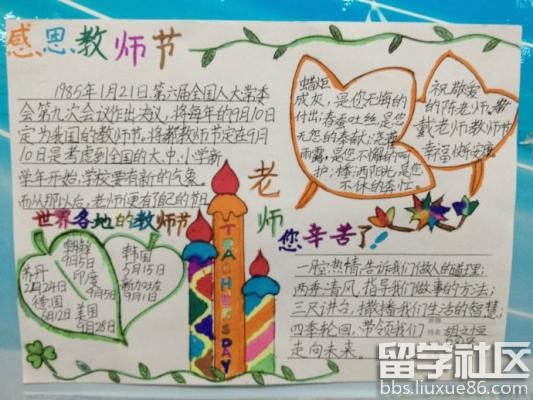 感恩教师节
1985年1月21日,第六届全国人大常委
会第九次会议作出决议,将每年的9月10日
定为我国的教师节,将教师节定在9月
10日是考虑到全国的大、中、小学新
学年开始,学校要有新的气象。
而从那以后,老师便有了自己的节日
世界各地的教师节
朝鲜
9月5日
印度
9月5日
苏丹
2月24日
德国
6月12日
美国
9月28日
韩国
5月15日
新加坡
9月1日
TEACHER'S DAY
蜡炬
成灰,是您无悔的
付出;春蚕吐丝,是您
无怨的奉献;
雨露,是您不懈的呵
护;播洒阳光,是您
不休的牵忙
祝敬爱
的陈老师、
戴老师教师节
幸福快乐安康
老师
您辛苦了!
一腔热情,告诉我们做人的道理;
两季清风,指导我们做事的方法;
三尺讲台,撒播我们生活的智慧;
四季轮回,带领我们
走向未来。
留学社区
bbs.liuxue86.com